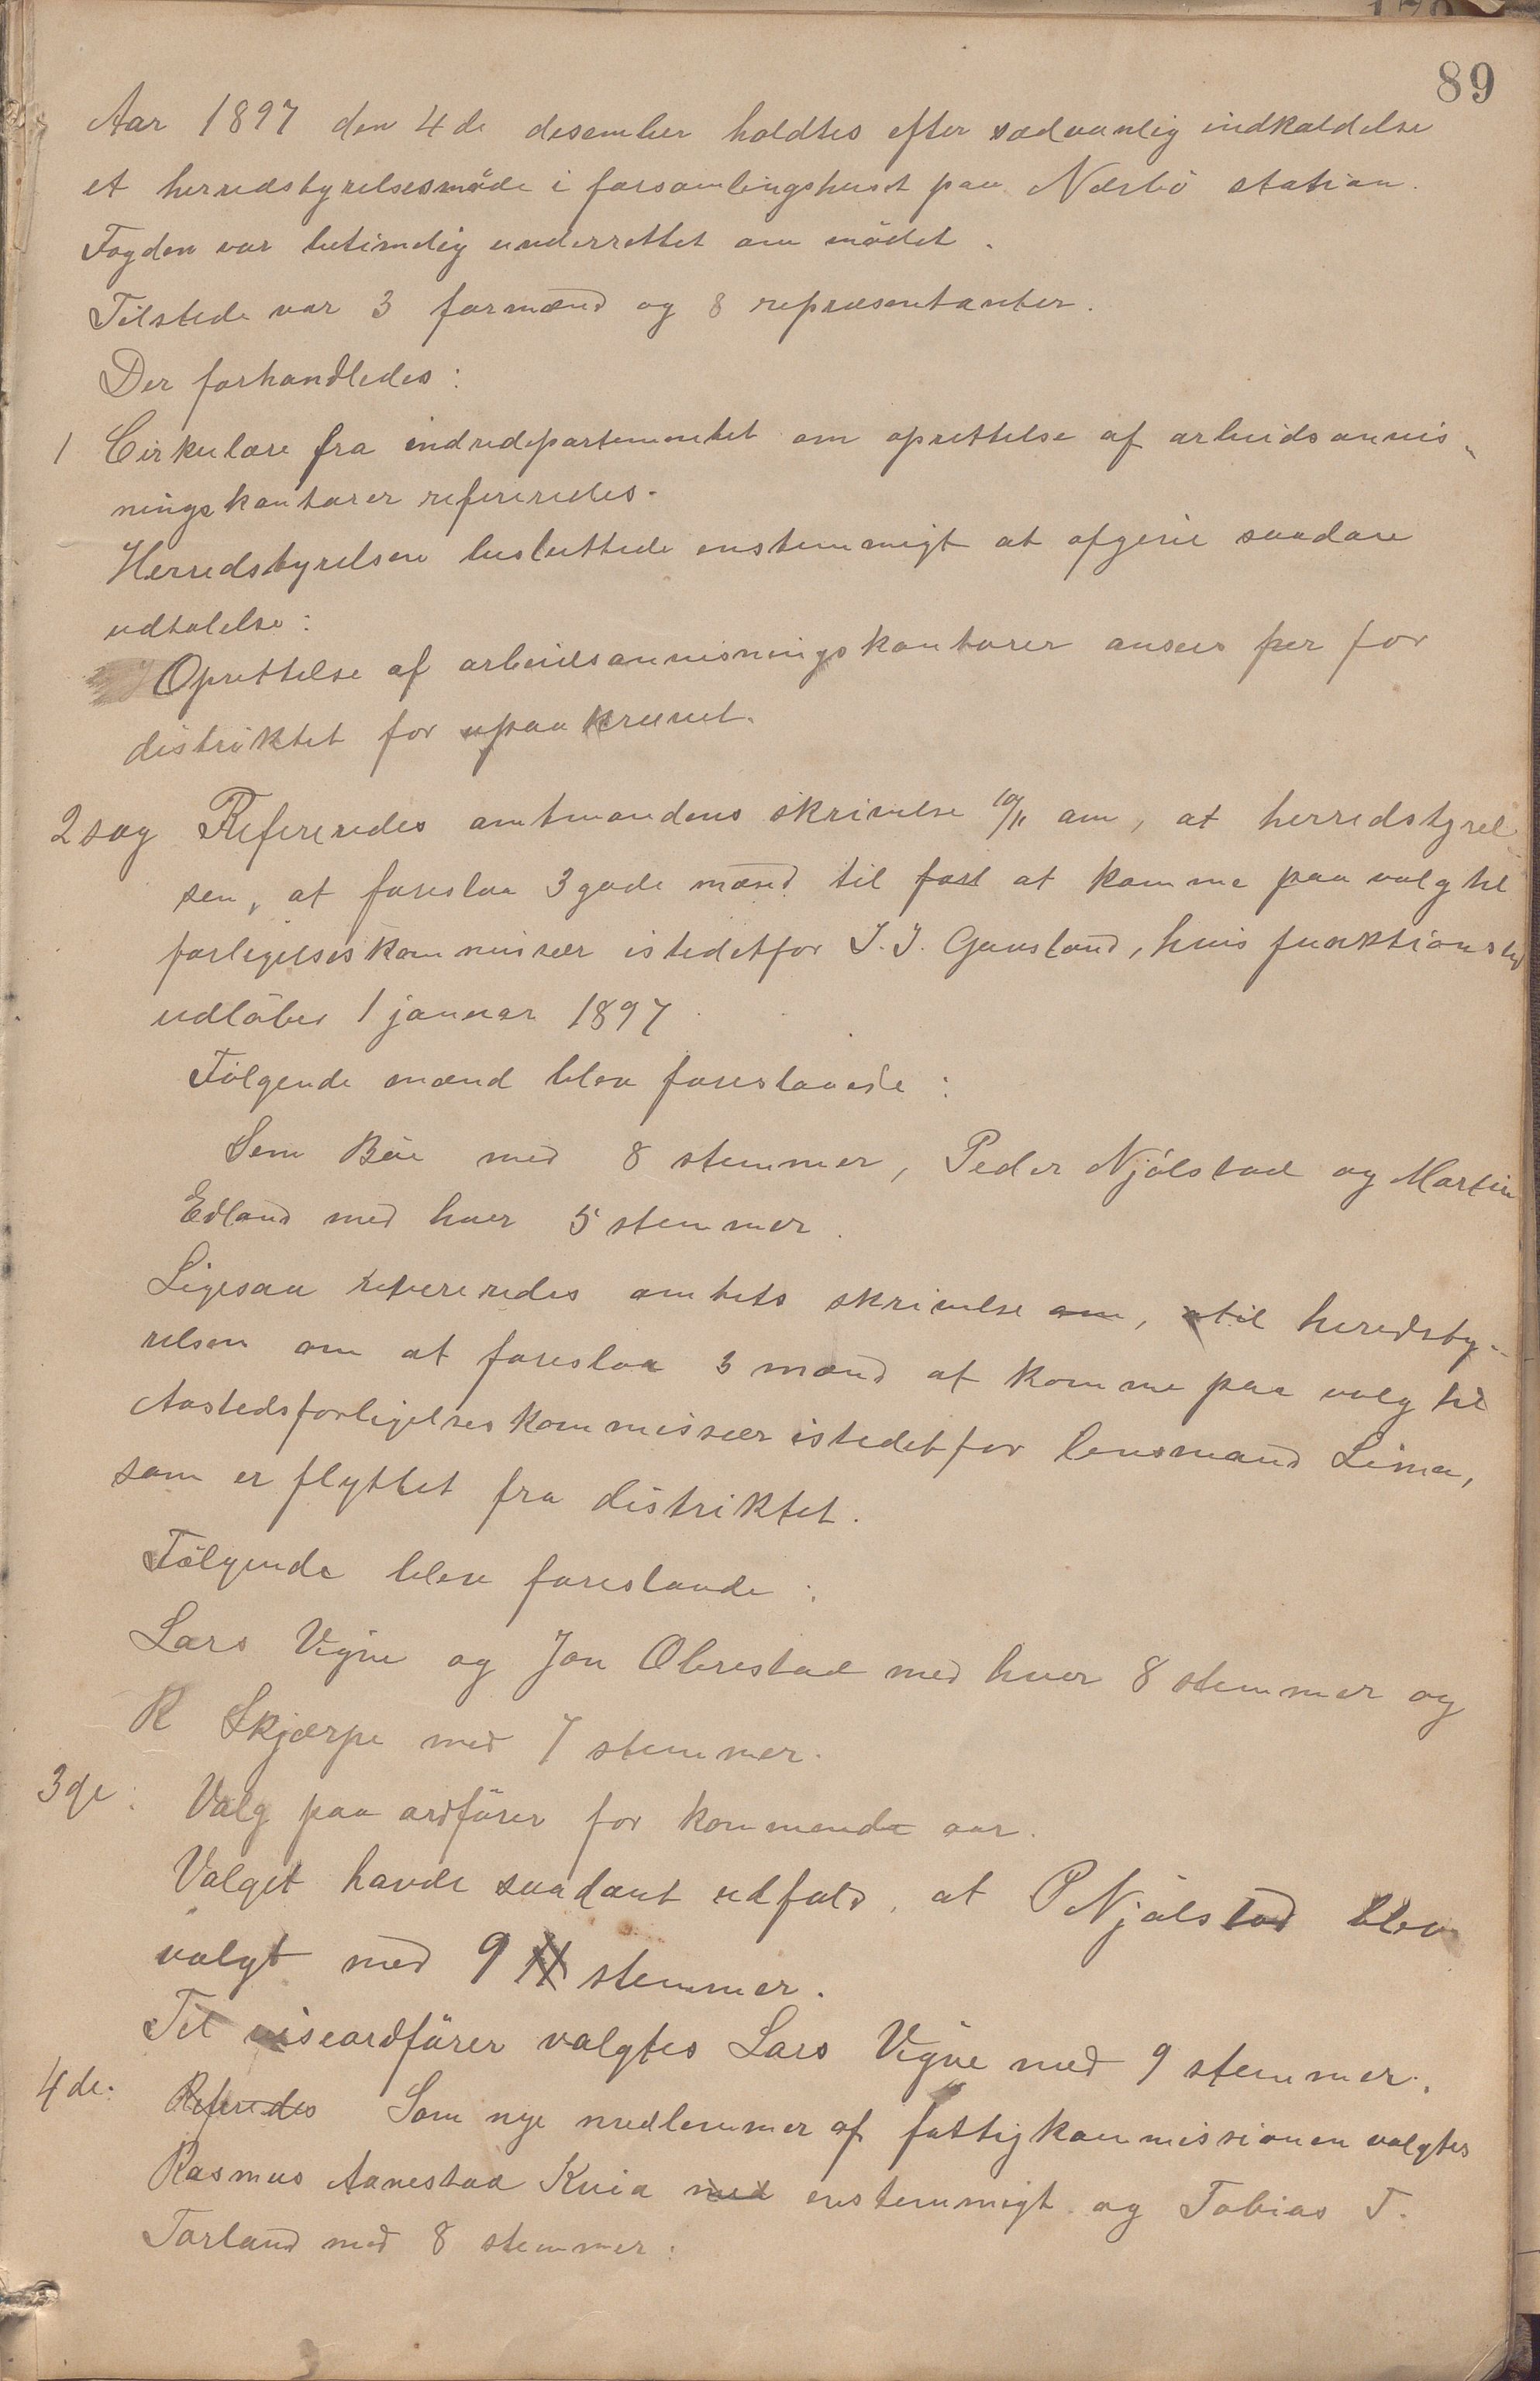 89
Aar 1897 den 4de desember holdtes efter sædvanlig indkaldelse
et herredstyrelsesmöde i forsamlingshuset paa Nærbö station.
Fogden var betimelig underrettet om mödet.
Tilstede var 3 formænd og 8 repræsentanter.
Der forhandledes:
1 Cirkulære fra indredepartementet om oprettelse af arbeidsanvis-
ningskontorer refereredes.
Herredstyrelsen besluttede enstemmigt at afgive saadan
udtalelse:
Oprettelse af arbeidsanvisningskontorer ansees her for
distriktet for upaakrævet.
2 sag Refereredes amtmandens skrivelse 10/11 om, at herredstyrel
sen, at foreslaa 3 gode mænd til fast at komme paa valg til
forligelseskommissær istedetfor J. J. Gausland, hvis funktionstid
udlöber 1 januar 1897
Fölgende mænd blev foreslaaede:
Sem Böe med 8 stemmer, Peder Njölstad og Martin
Edland med hver 5 stemmer.
Ligesaa refereredes amtets skrivelse om, til heredsty-
relsen om at foreslaa 3 mænd at komme paa valg til
Aastedsforligelseskommissær istedetfor lensmand Lima,
som er flyttet fra distriktet.
Fölgende blev foreslaade:
Lars Vigre og Jon Obrestad med hver 8 stemmer og
R Skjærpe med 7 stemmer.
3die: Valg paa ordförer for kommende aar.
Valget havde saadant udfald, at P Njölstad blev
valgt med 9 stemmer.
Til viseordförer valgtes Lars Vigre med 9 stemmer.
4de. Referedes Som nye medlemmer af fattigkommissionen valgtes
Rasmus Aanestad Kvia med enstemmigt og Tobias T.
Torland med 8 stemmer: